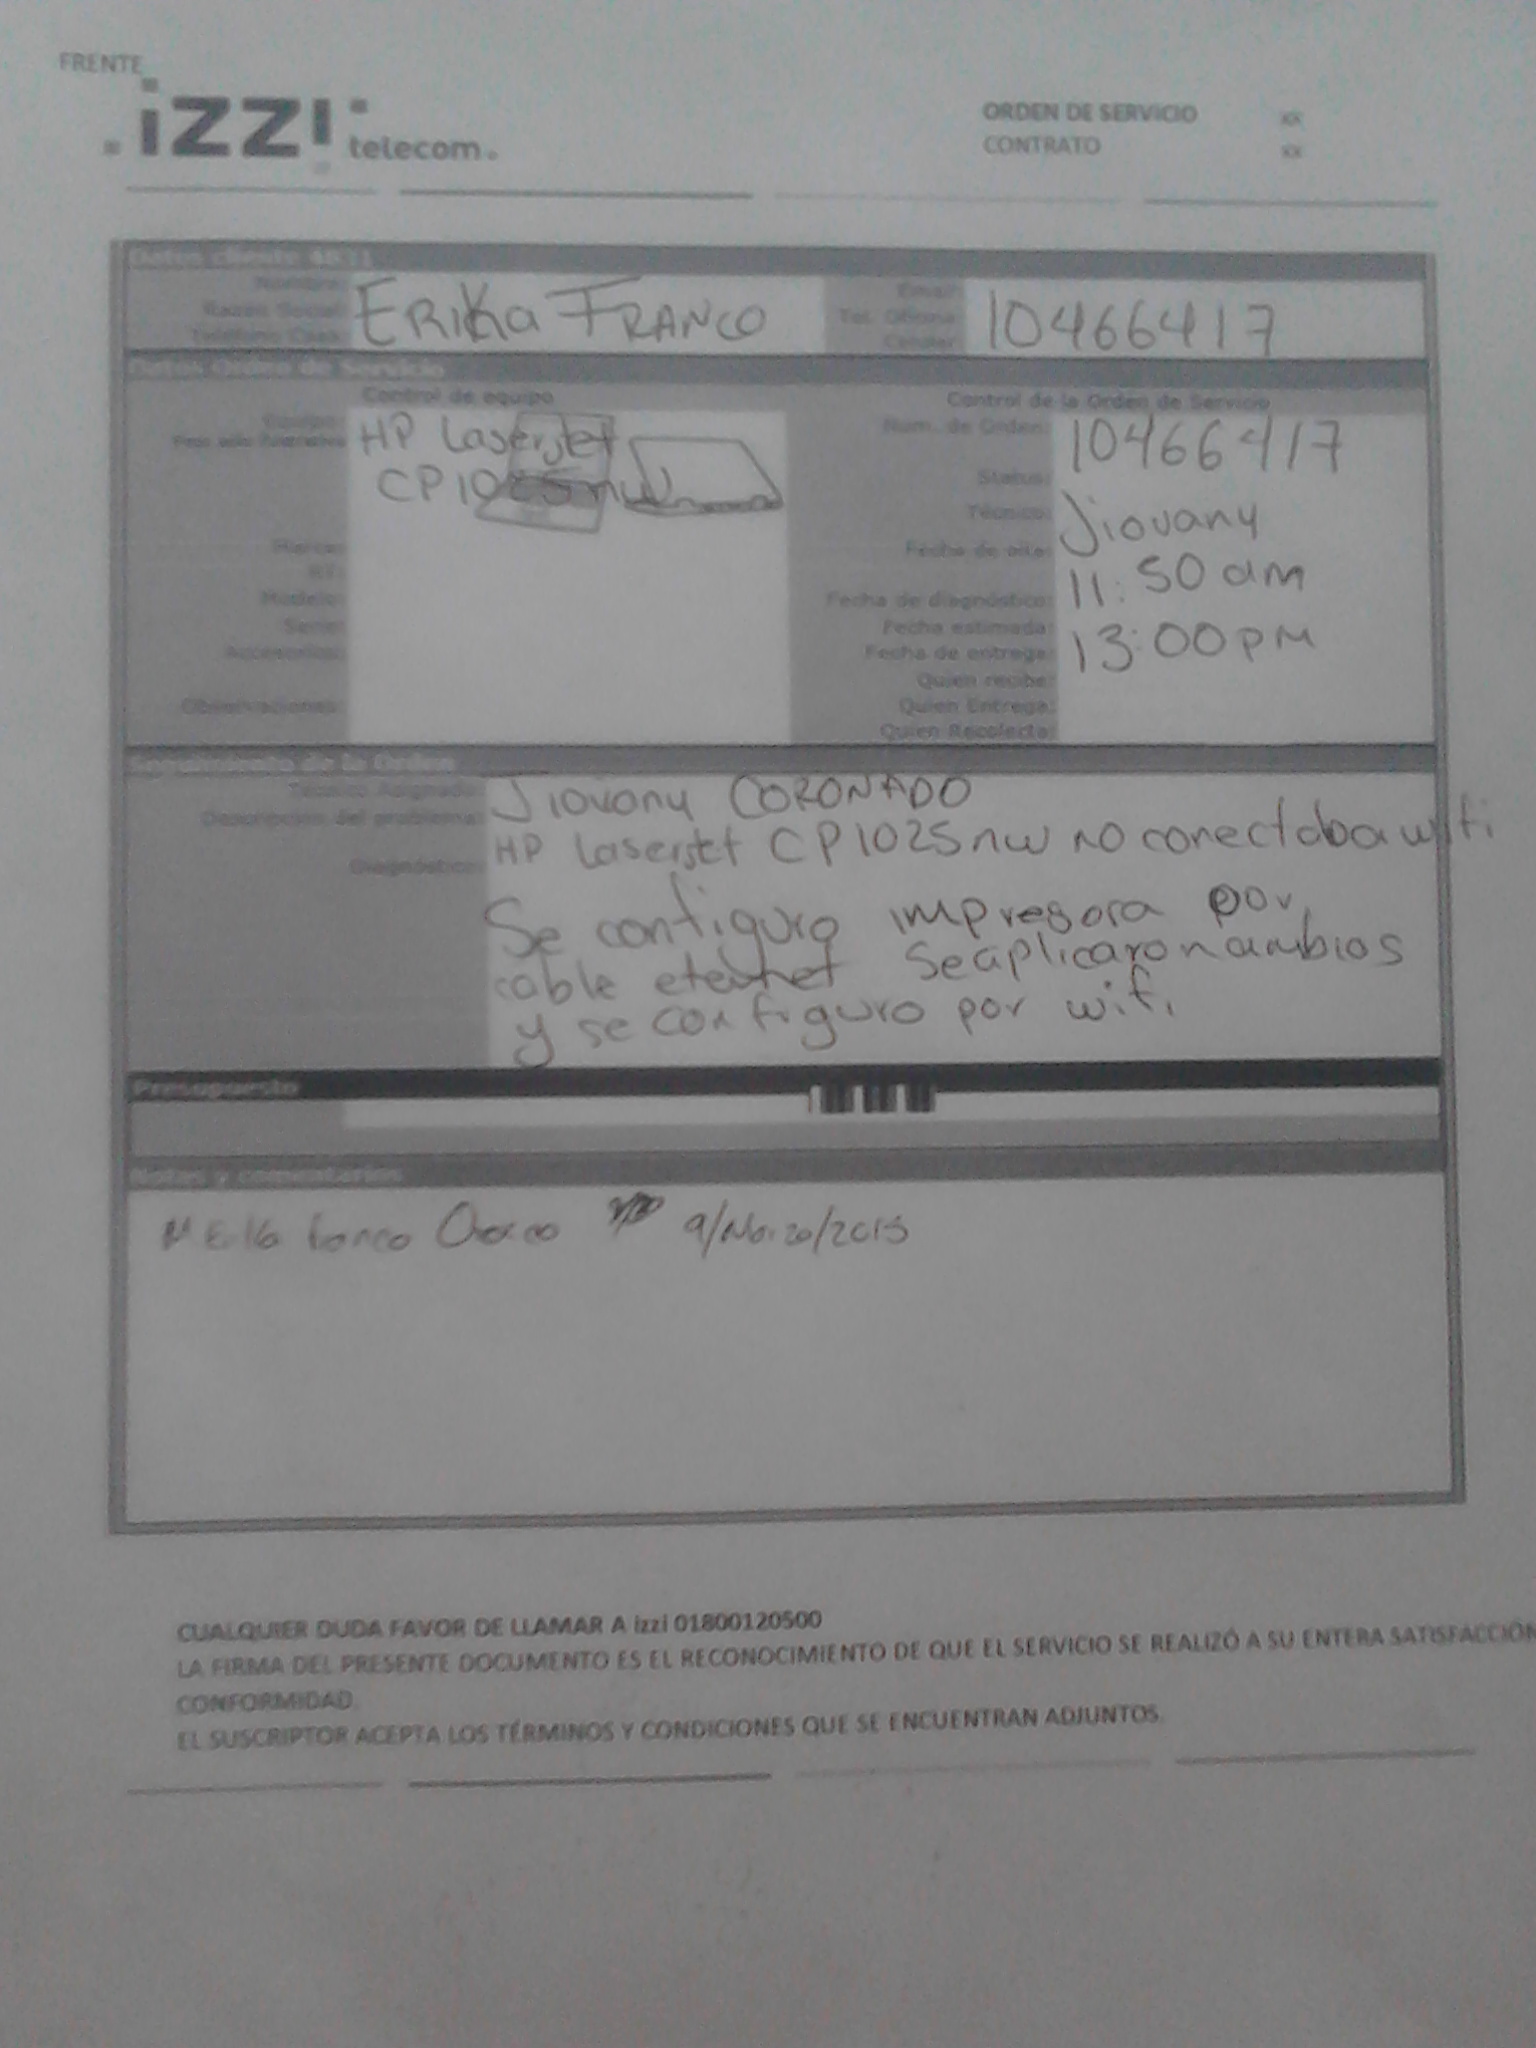 FRENTE
izzi telecom.
ORDEN DE SERVICIO xx
CONTRATO xx
Datos cliente
Nombre:
Razón Social:
Teléfono Casa:
ERIKa FRANCO
Email:
Tel. Oficina
Celular:
10466417
Datos Orden de Servicio
Control de equipo
Equipo:
HP Laserjet
CP1025nw
Marca:
Modelo:
Serie:
Accesorios:
Observaciones:
Control de la Orden de Servicio
Num. de Orden: 10466417
Status:
Técnico: Jiovany
Fecha de alta:
Fecha de diagnóstico: 11:50 am
Fecha estimada:
Fecha de entrega: 13:00 pm
Quien recibe:
Quien Entrega:
Quien Recolecta:
Seguimiento de la Orden
Técnico Asignado: Jiovany CORONADO
Descripción del problema: HP Laserjet CP1025nw no conectaba wifi
Diagnóstico:
Se configuro impresora por
cable eternet Se aplicaron cambios
y se configuro por wifi
Presupuesto
Notas y comentarios
9/Marzo/2015
CUALQUIER DUDA FAVOR DE LLAMAR A izzi 01800120500
LA FIRMA DEL PRESENTE DOCUMENTO ES EL RECONOCIMIENTO DE QUE EL SERVICIO SE REALIZÓ A SU ENTERA SATISFACCIÓN
CONFORMIDAD.
EL SUSCRIPTOR ACEPTA LOS TÉRMINOS Y CONDICIONES QUE SE ENCUENTRAN ADJUNTOS.